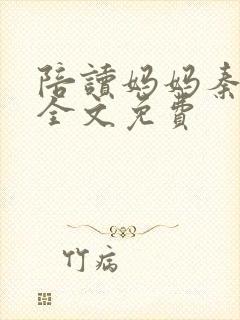 陪讀妈妈秦
全文免費
竹病